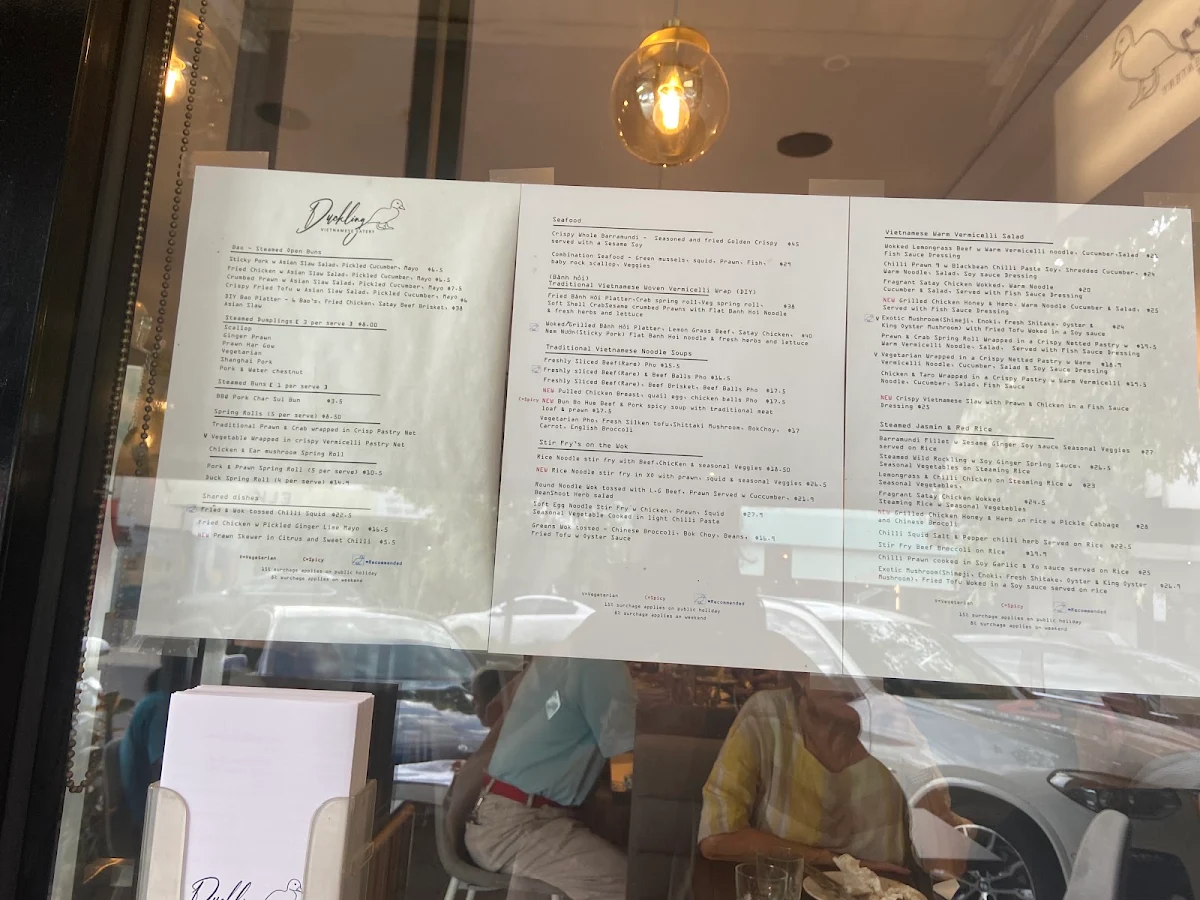 Duckling
VIETNAMESE EATERY
Bao - Steamed Open Buns
Sticky Pork w Asian Slaw Salad, Pickled Cucumber, Mayo $6.5
Fried Chicken w Asian Slaw Salad, Pickled Cucumber, Mayo $6.5
Crumbed Prawn w Asian Slaw Salad, Pickled Cucumber, Mayo $7.5
Crispy Tofu w Asian Slaw Salad, Pickled Cucumber, Mayo
DIY Bao Platter - 6 Bao's, Fried Chicken, Satay Beef Brisket, $38
Asian Slaw
Steamed Dumplings £ 3 per serve 3 $8.00
Scallop
Ginger Prawn
Prawn Har Gow
Vegetarian
Shanghai Pork
Pork & Water chestnut
Steamed Buns £ 1 per serve 3
BBQ Pork Char Sui Bun $3.5
Spring Rolls (3 per serve) $8.50
Traditional Prawn & Crab wrapped in Crisp Pastry Net
V Vegetable Wrapped in crispy Vermicelli Pastry Net
Chicken & Ear mushroom Spring Roll
Pork & Prawn Spring Roll (3 per serve) $10.5
Duck Spring Roll (4 per serve) $14.9
Shared dishes
Fried & Wok tossed Chilli Squid $22.5
Fried Chicken w Pickled Ginger Lime Mayo $16.5
NEW Prawn Skewer in Citrus and Sweet Chilli $5.5
V=Vegetarian C=Spicy =Recommended
15% surchage applies on public holiday
8% surchage applies on weekend
Seafood
Crispy Whole Barramundi - Seasoned and fried Golden Crispy $45
served with a Sesame Soy
Combination Seafood - Green mussels, squid, Prawn, Fish, $29
baby rock scallop, Veggies
(Bánh hỏi)
Traditional Vietnamese Woven Vermicelli Wrap (DIY)
Fried Bánh Hỏi Platter,Crab spring roll,Veg spring roll, $38
Soft Shell CrabSesame crumbed Prawns with Flat Banh Hoi Noodle
& fresh herbs and lettuce
Woked/Grilled Bánh Hỏi Platter, Lemon Grass Beef, Satay Chicken, $40
Nem Nướn(Sticky Pork) Flat Banh Hoi noodle & fresh herbs and lettuce
Traditional Vietnamese Noodle Soups
Freshly Sliced Beef(Rare) Pho $15.5
Freshly sliced Beef(Rare) & Beef Balls Pho $16.5
Freshly Sliced Beef(Rare), Beef Brisket, Beef Balls Pho $17.5
NEW Pulled Chicken Breast, quail egg, chicken balls Pho $17.5
C=Spicy NEW Bun Bo Hue Beef & Pork spicy soup with traditional meat
loaf & prawn $17.5
Vegetarian Pho, Fresh Silken tofu,Shittaki Mushroom, BokChoy, $17
Carrot, English Broccoli
Stir Fry's on the Wok
Rice Noodle stir Fry with Beef,ChicKen & seasonal Veggies $18.50
NEW Rice Noodle stir fry in XO with prawn, squid & seasonal Veggies $26.5
Round Noodle Wok tossed with L.G Beef, Prawn Served w Cuccumber, $21.9
BeanShoot Herb salad
Soft Egg Noodle Stir Fry w Chicken, Prawn, Squid $27.9
Seasonal Vegetable Cooked in light Chilli Paste
Greens Wok tossed - Chinese Broccoli, Bok Choy, Beans, $16.9
Fried Tofu w Oyster Sauce
V=Vegetarian C=Spicy =Recommended
15% surchage applies on public holiday
8% surchage applies on weekend
Vietnamese Warm Vermicelli Salad
Wokked Lemongrass Beef w Warm Vermicelli noodle, Cucumber,Salad
Fish Sauce Dressing
Chilli Prawn w Blackbean Chilli Paste Soy, Shredded Cucumber, $24
Warm Noodle, Salad, Soy sauce Dressing
Fragrant Satay Chicken Wokked, Warm Noodle $20
Cucumber & Salad, Served with Fish Sauce Dressing
NEW Grilled Chicken Honey & Herb, Warm Noodle Cucumber & Salad, $25
Served with Fish Sauce Dressing
V Exotic Mushroom(Shimeji, Enoki, Fresh Shitake, Oyster & $24
King Oyster Mushroom) with Fried Tofu Woked in a Soy sauce
Prawn & Crab Spring Roll Wrapped in a Crispy Netted Pastry w $19.5
Warm Vermicelli Noodle, Salad, Served with Fish Sauce Dressing
V Vegetarian Wrapped in a Crispy Netted Pastry w Warm $18.9
Vermicelli Noodle, Cucumber, Salad & Soy Sauce Dressing
Chicken & Taro Wrapped in a Crispy Pastry w Warm Vermicelli $19.5
Noodle, Cucumber, Salad, Fish Sauce
NEW Crispy Vietnamese Slaw with Prawn & Chicken in a Fish Sauce
Dressing $25
Steamed Jasmin & Red Rice
Barramundi Fillet w Sesame Ginger Soy sauce Seasonal Veggies $27
served on Rice
Steamed Wild Rockling w Soy Ginger Spring Sauce, $26.5
Seasonal Vegetables on Steaming Rice
Lemongrass & Chilli Chicken on Steaming Rice w $23
Seasonal Vegetables,
Fragrant Satay Chicken Wokked $24.5
Steaming Rice w Seasonal Vegetables
NEW Grilled Chicken Honey & Herb on rice w Pickle Cabbage $28
and Chinese Brocoli
Chilli Squid Salt & Pepper chilli herb Served on Rice $22.5
Stir Fry Beef Broccoli on Rice $19.9
Chilli Prawn cooked in Soy Garlic & Xo sauce served on Rice $25
Exotic Mushroom(Shimeji, Enoki, Fresh Shitake, Oyster & King Oyster $26.9
Mushroom), Fried Tofu Woked in a Soy sauce served on rice
V=Vegetarian C=Spicy =Recommended
15% surchage applies on public holiday
8% surchage applies on weekend
Duckling